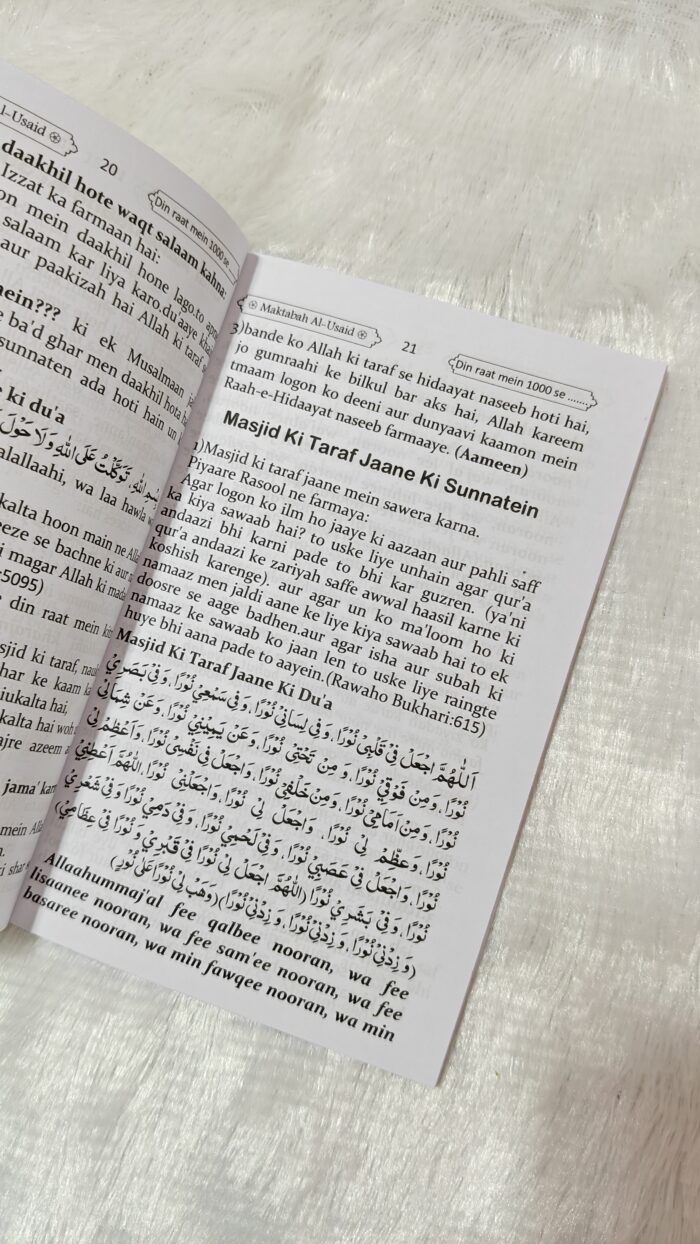 l-Usaid
20
Din raat mein 1000 se
daakhil hote waqt salaam kahna:
Izzat ka farmaan hai:
on mein daakhil hone lago.to apne
salaam kar liya karo.du'aaye khai
aur paakizah hai Allah ki taraf s
mein??? ki ek Musalmaan ja
e ba'd ghar men daakhil hota h
sunnaten ada hoti hain un
e ki du'a
بِسْمِ اللهِ، تَوَكَّلْتُ عَلَى اللهِ وَلَا حَوْلَ
alallaahi, wa laa hawla w
kalta hoon main ne Alla
eeze se bachne ki aur n
i magar Allah ki mada
:5095)
e din raat mein kit
sjid ki taraf, nau
har ke kaam ka
iukalta hai,
kalta hai woh
ajre azeem a
jama' kar
mein All
n.
ri shar
Maktabah Al-Usaid
21
Din raat mein 1000 se .......
3)bande ko Allah ki taraf se hidaayat naseeb hoti hai,
jo gumraahi ke bilkul bar aks hai, Allah kareem
tmaam logon ko deeni aur dunyaavi kaamon mein
Raah-e-Hidaayat naseeb farmaaye. (Aameen)
Masjid Ki Taraf Jaane Ki Sunnatein
1)Masjid ki taraf jaane mein sawera karna.
Piyaare Rasool ne farmaya:
Agar logon ko ilm ho jaaye ki aazaan aur pahli saff
ka kiya sawaab hai? to uske liye unhain agar qur'a
andaazi bhi karni pade to bhi kar guzren. (ya'ni
qur'a andaazi ke zariyah saffe awwal haasil karne ki
koshish karenge). aur agar un ko ma'loom ho ki
namaaz men jaldi aane ke liye kiya sawaab hai to ek
doosre se aage badhen.aur agar isha aur subah ki
namaaz ke sawaab ko jaan len to uske liye raingte
huye bhi aana pade to aayein.(Rawaho Bukhari:615)
Masjid Ki Taraf Jaane Ki Du'a
اَللّٰهُمَّ اجْعَلْ فِيْ قَلْبِيْ نُوْرًا، وَفِيْ لِسَانِيْ نُوْرًا، وَفِيْ سَمْعِيْ نُوْرًا، وَفِيْ بَصَرِيْ
نُوْرًا، وَمِنْ فَوْقِيْ نُوْرًا، وَ مِنْ تَحْتِيْ نُوْرًا، وَعَنْ يَمِيْنِيْ نُوْرًا، وَعَنْ شِمَالِيْ
نُوْرًا، وَمِنْ اَمَامِيْ نُوْرًا، وَمِنْ خَلْفِيْ نُوْرًا، وَاجْعَلْ فِيْ نَفْسِيْ نُوْرًا، وَاَعْظِمْ لِيْ
نُوْرًا، وَعَظِّمْ لِيْ نُوْرًا، وَاجْعَلْ لِيْ نُوْرًا، وَاجْعَلْنِيْ نُوْرًا، اَللّٰهُمَّ اَعْطِنِيْ
نُوْرًا، وَاجْعَلْ فِيْ عَصَبِيْ نُوْرًا، وَفِيْ لَحْمِيْ نُوْرًا، وَفِيْ دَمِيْ نُوْرًا وَفِيْ شَعْرِيْ
نُوْرًا، وَفِيْ بَشَرِيْ نُوْرًا (اَللّٰهُمَّ اجْعَلْ لِيْ نُوْرًا فِيْ قَبْرِيْ وَ نُوْرًا فِيْ عِظَامِيْ)
(وَ زِدْنِيْ نُوْرًا، وَ زِدْنِيْ نُوْرًا، وَ زِدْنِيْ نُوْرًا)(وَهَبْ لِيْ نُوْرًا عَلٰى نُوْرٍ)
Allaahummaj'al fee qalbee nooran, wa fee
lisaanee nooran, wa fee sam'ee nooran, wa fee
basaree nooran, wa min fawqee nooran, wa min